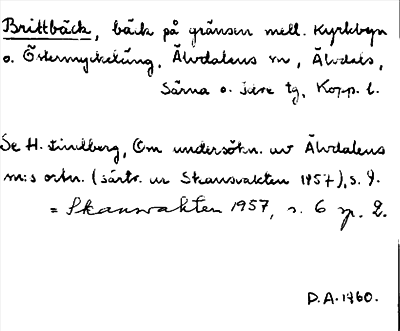 Brittbäck, bäck på gränsen mell. Kyrkbyn
o. Östermyckeläng, Älvdalens sn, Älvdals,
Särna o. Idre tg, Kopp. l.
Se H. Lindberg, Om undersökn. av Älvdalens
sn:s ortn. (särtr. ur Skansvakten 1957), s. 9.
= Skansvakten 1957, s. 6 sp. 2.
D.A. 1960.